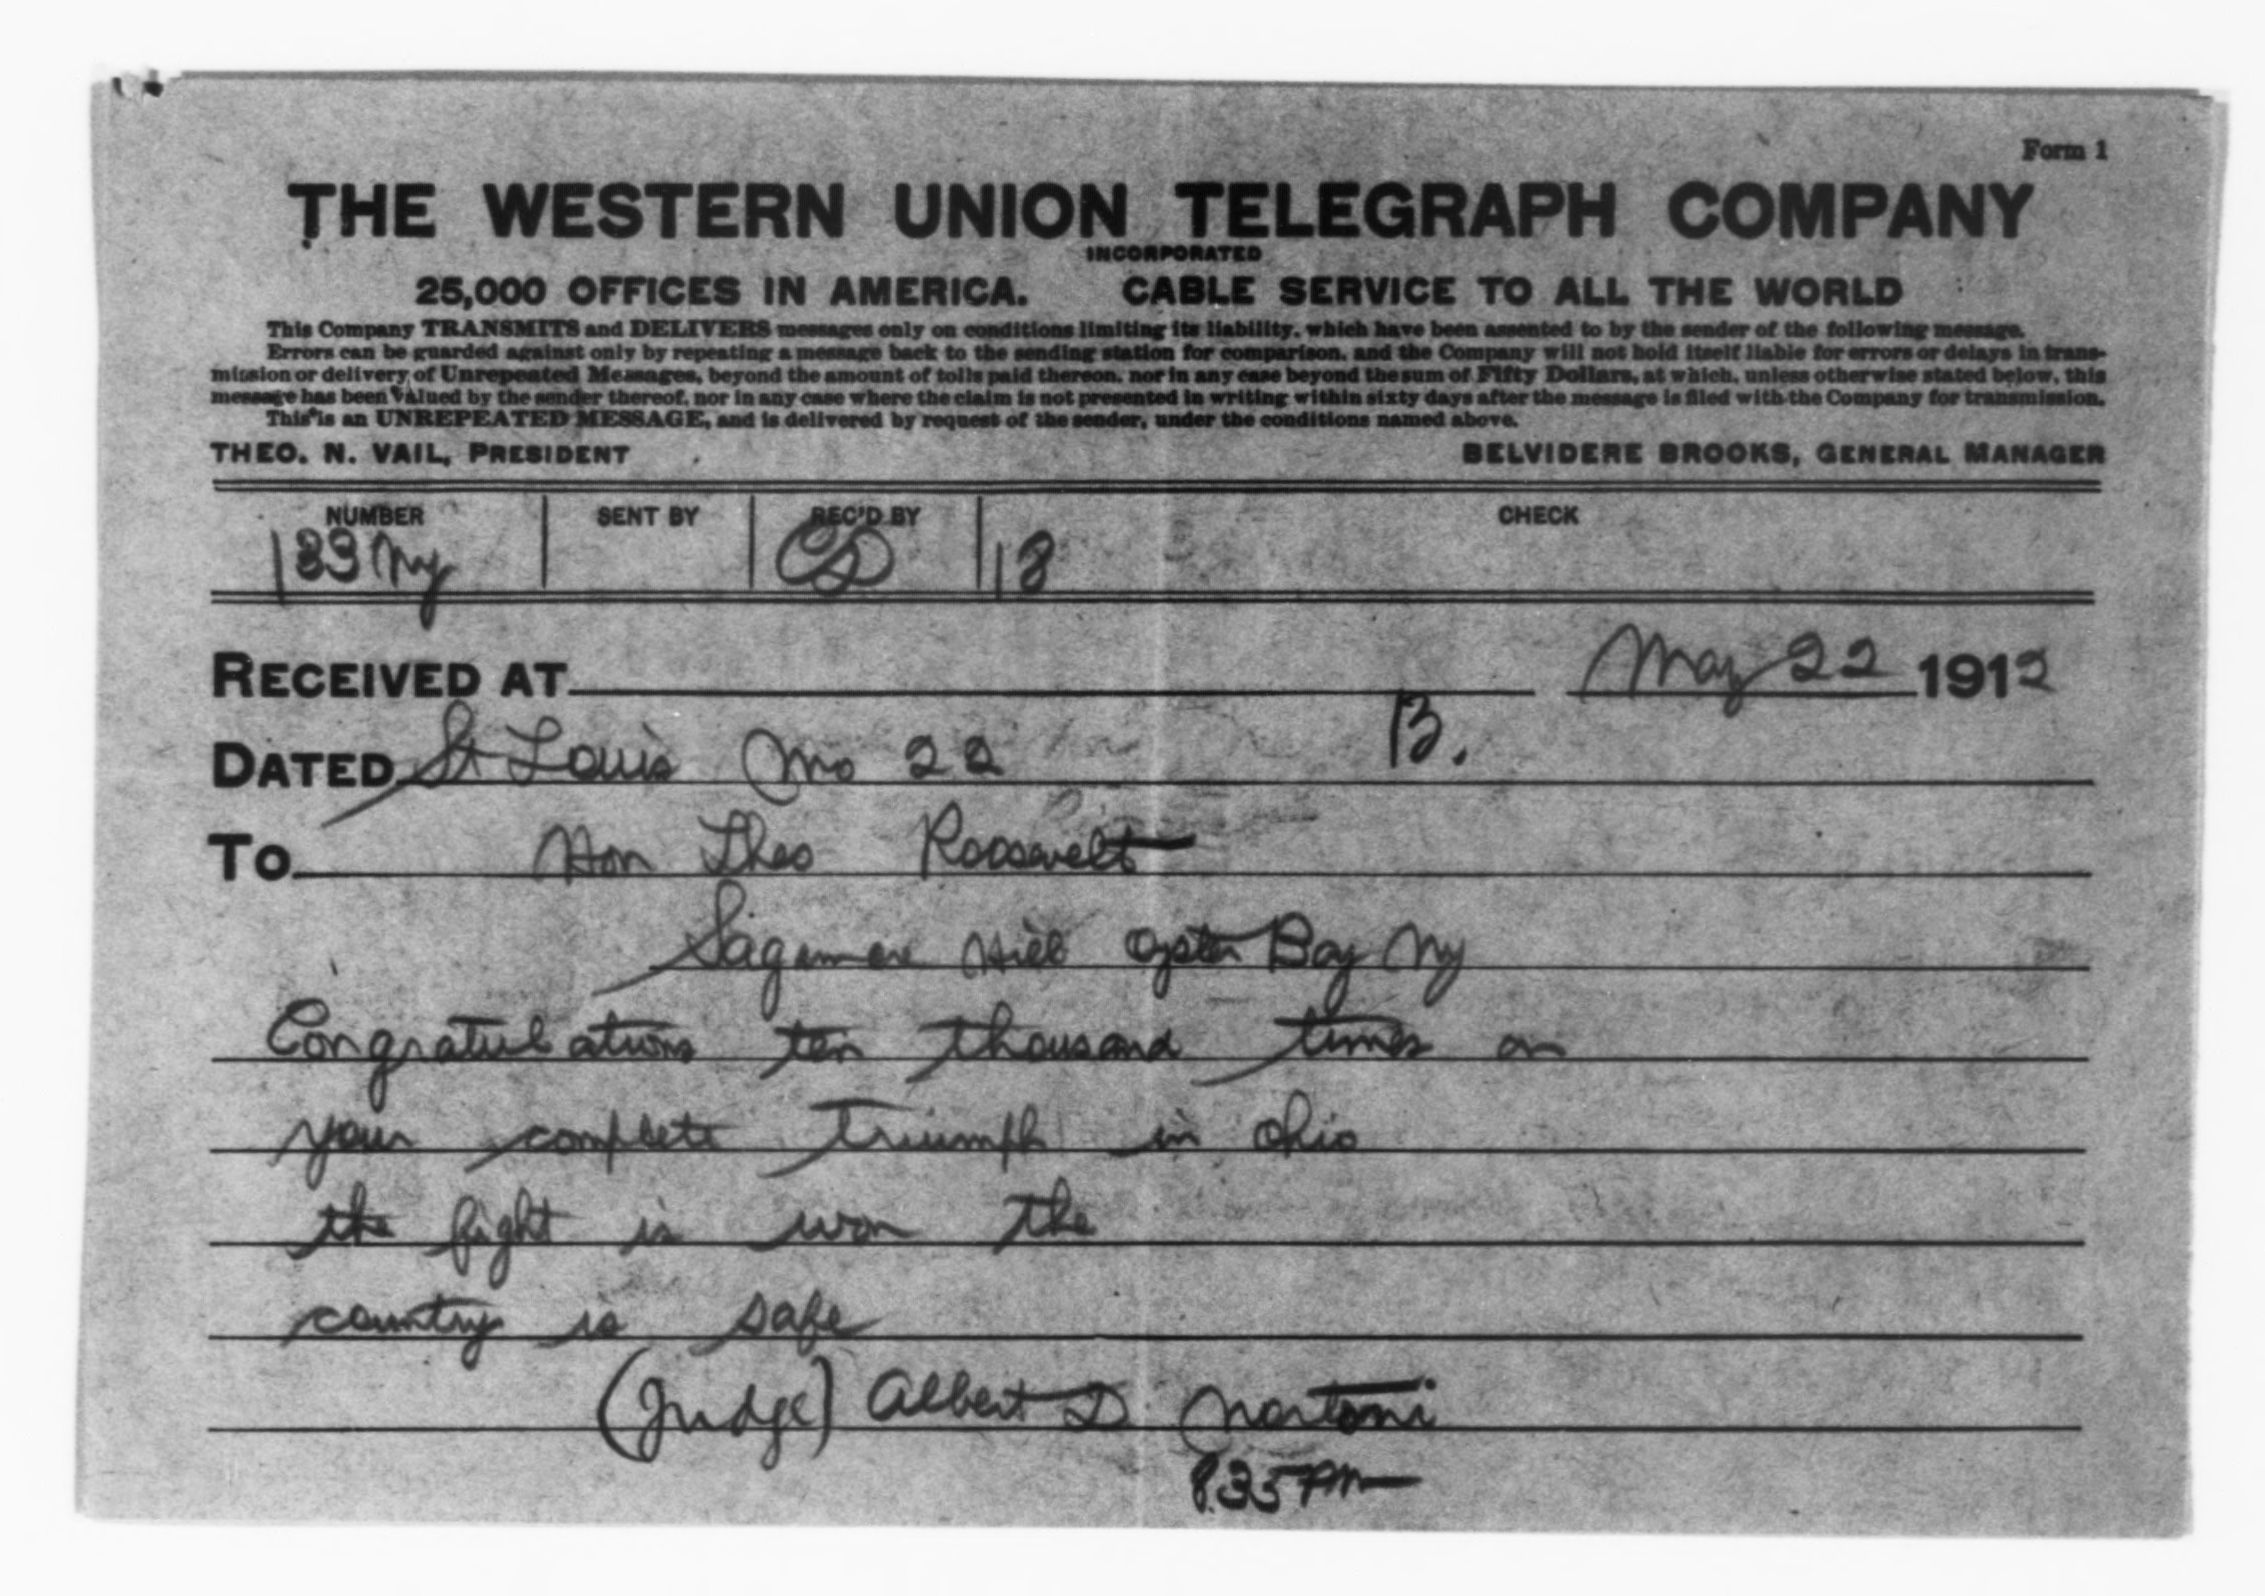 Form 1
THE WESTERN UNION TELEGRAPH COMPANY
INCORPORATED
25,000 OFFICES IN AMERICA. CABLE SERVICE TO ALL THE WORLD
This Company TRANSMITS and DELIVERS messages only on conditions limiting its liability, which have been assented to by the sender of the following message.
Errors can be guarded against only by repeating a message back to the sending station for comparison, and the Company will not hold itself liable for errors or delays in trans-
mission or delivery of Unrepeated Messages, beyond the amount of tolls paid thereon, nor in any case beyond the sum of Fifty Dollars, at which, unless otherwise stated below, this
message has been valued by the sender thereof, nor in any case where the claim is not presented in writing within sixty days after the message is filed with the Company for transmission.
This is an UNREPEATED MESSAGE, and is delivered by request of the sender, under the conditions named above.
THEO. N. VAIL, PRESIDENT BELVIDERE BROOKS, GENERAL MANAGER
NUMBER SENT BY REC'D BY CHECK
133 Ny CD 18
RECEIVED AT May 22 1912
DATED St Louis Mo 22 B.
To Hon Theo Roosevelt
Sagamore Hill Oyster Bay Ny
Congratulations ten thousand times on
your complete triumph in Ohio
the fight is won the
country is safe
(Judge) Albert D Nortoni
835 PM